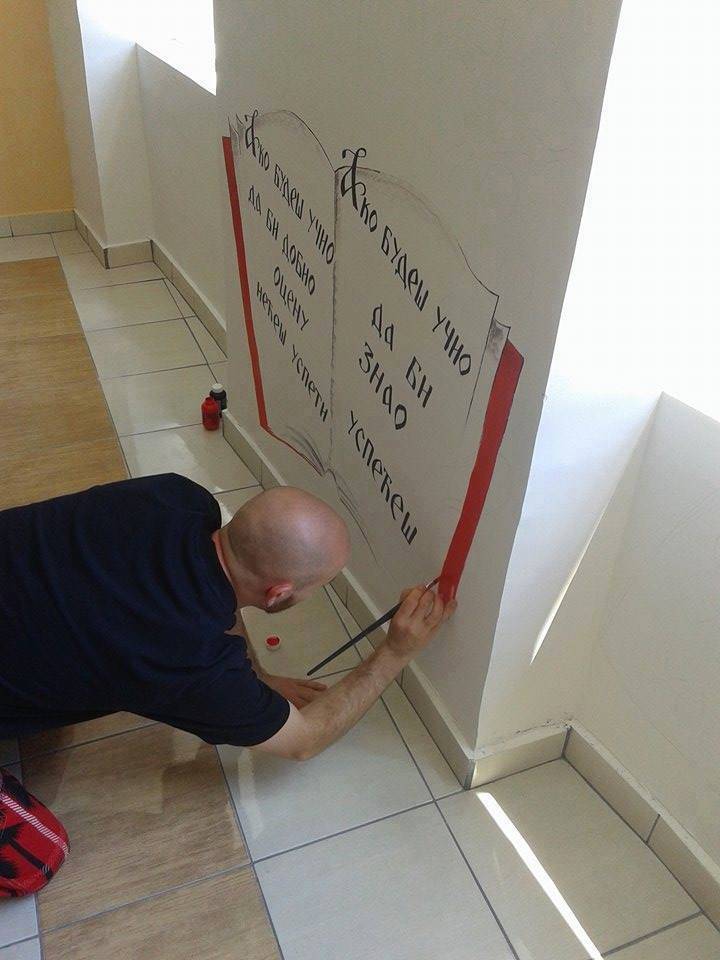 Ако будеш учио
да би добио
оцену
нећеш успети
Ако будеш учио
да би
знао
успећеш